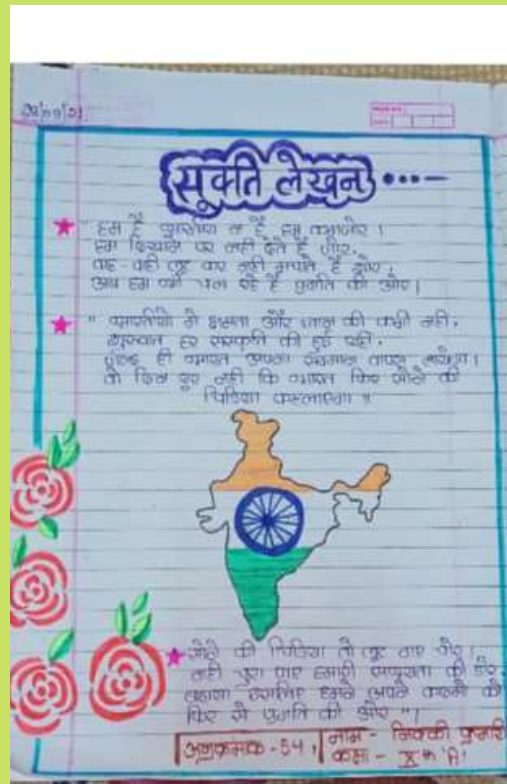 सूक्ति लेखन
" हम हैं भारतीय न हैं हम कमजोर।
हम दिखावे पर नहीं देते हैं जोर,
वाह-वाही लूट कर नहीं मचाते हैं शोर,
अब हम भी चल रहे हैं प्रगति की ओर।
" भारतीयों में क्षमता और ज्ञान की कमी नहीं,
शुरुवात हर संस्कृति की हुई यहीं,
ही भारत अपना सम्मान वापस
वो दिन दूर नहीं कि भारत फिर सोने की
चिड़िया कहलाएगा "
सोने की चिड़िया तो लूट गए चोर।
नहीं चुरा पाए हमारी
इसलिए हमने अपने कदमों को
फिर से प्रगति की ओर "।
अनुक्रमांक - 54,
नाम - निक्की कुमारी
कक्षा - X th 'A'